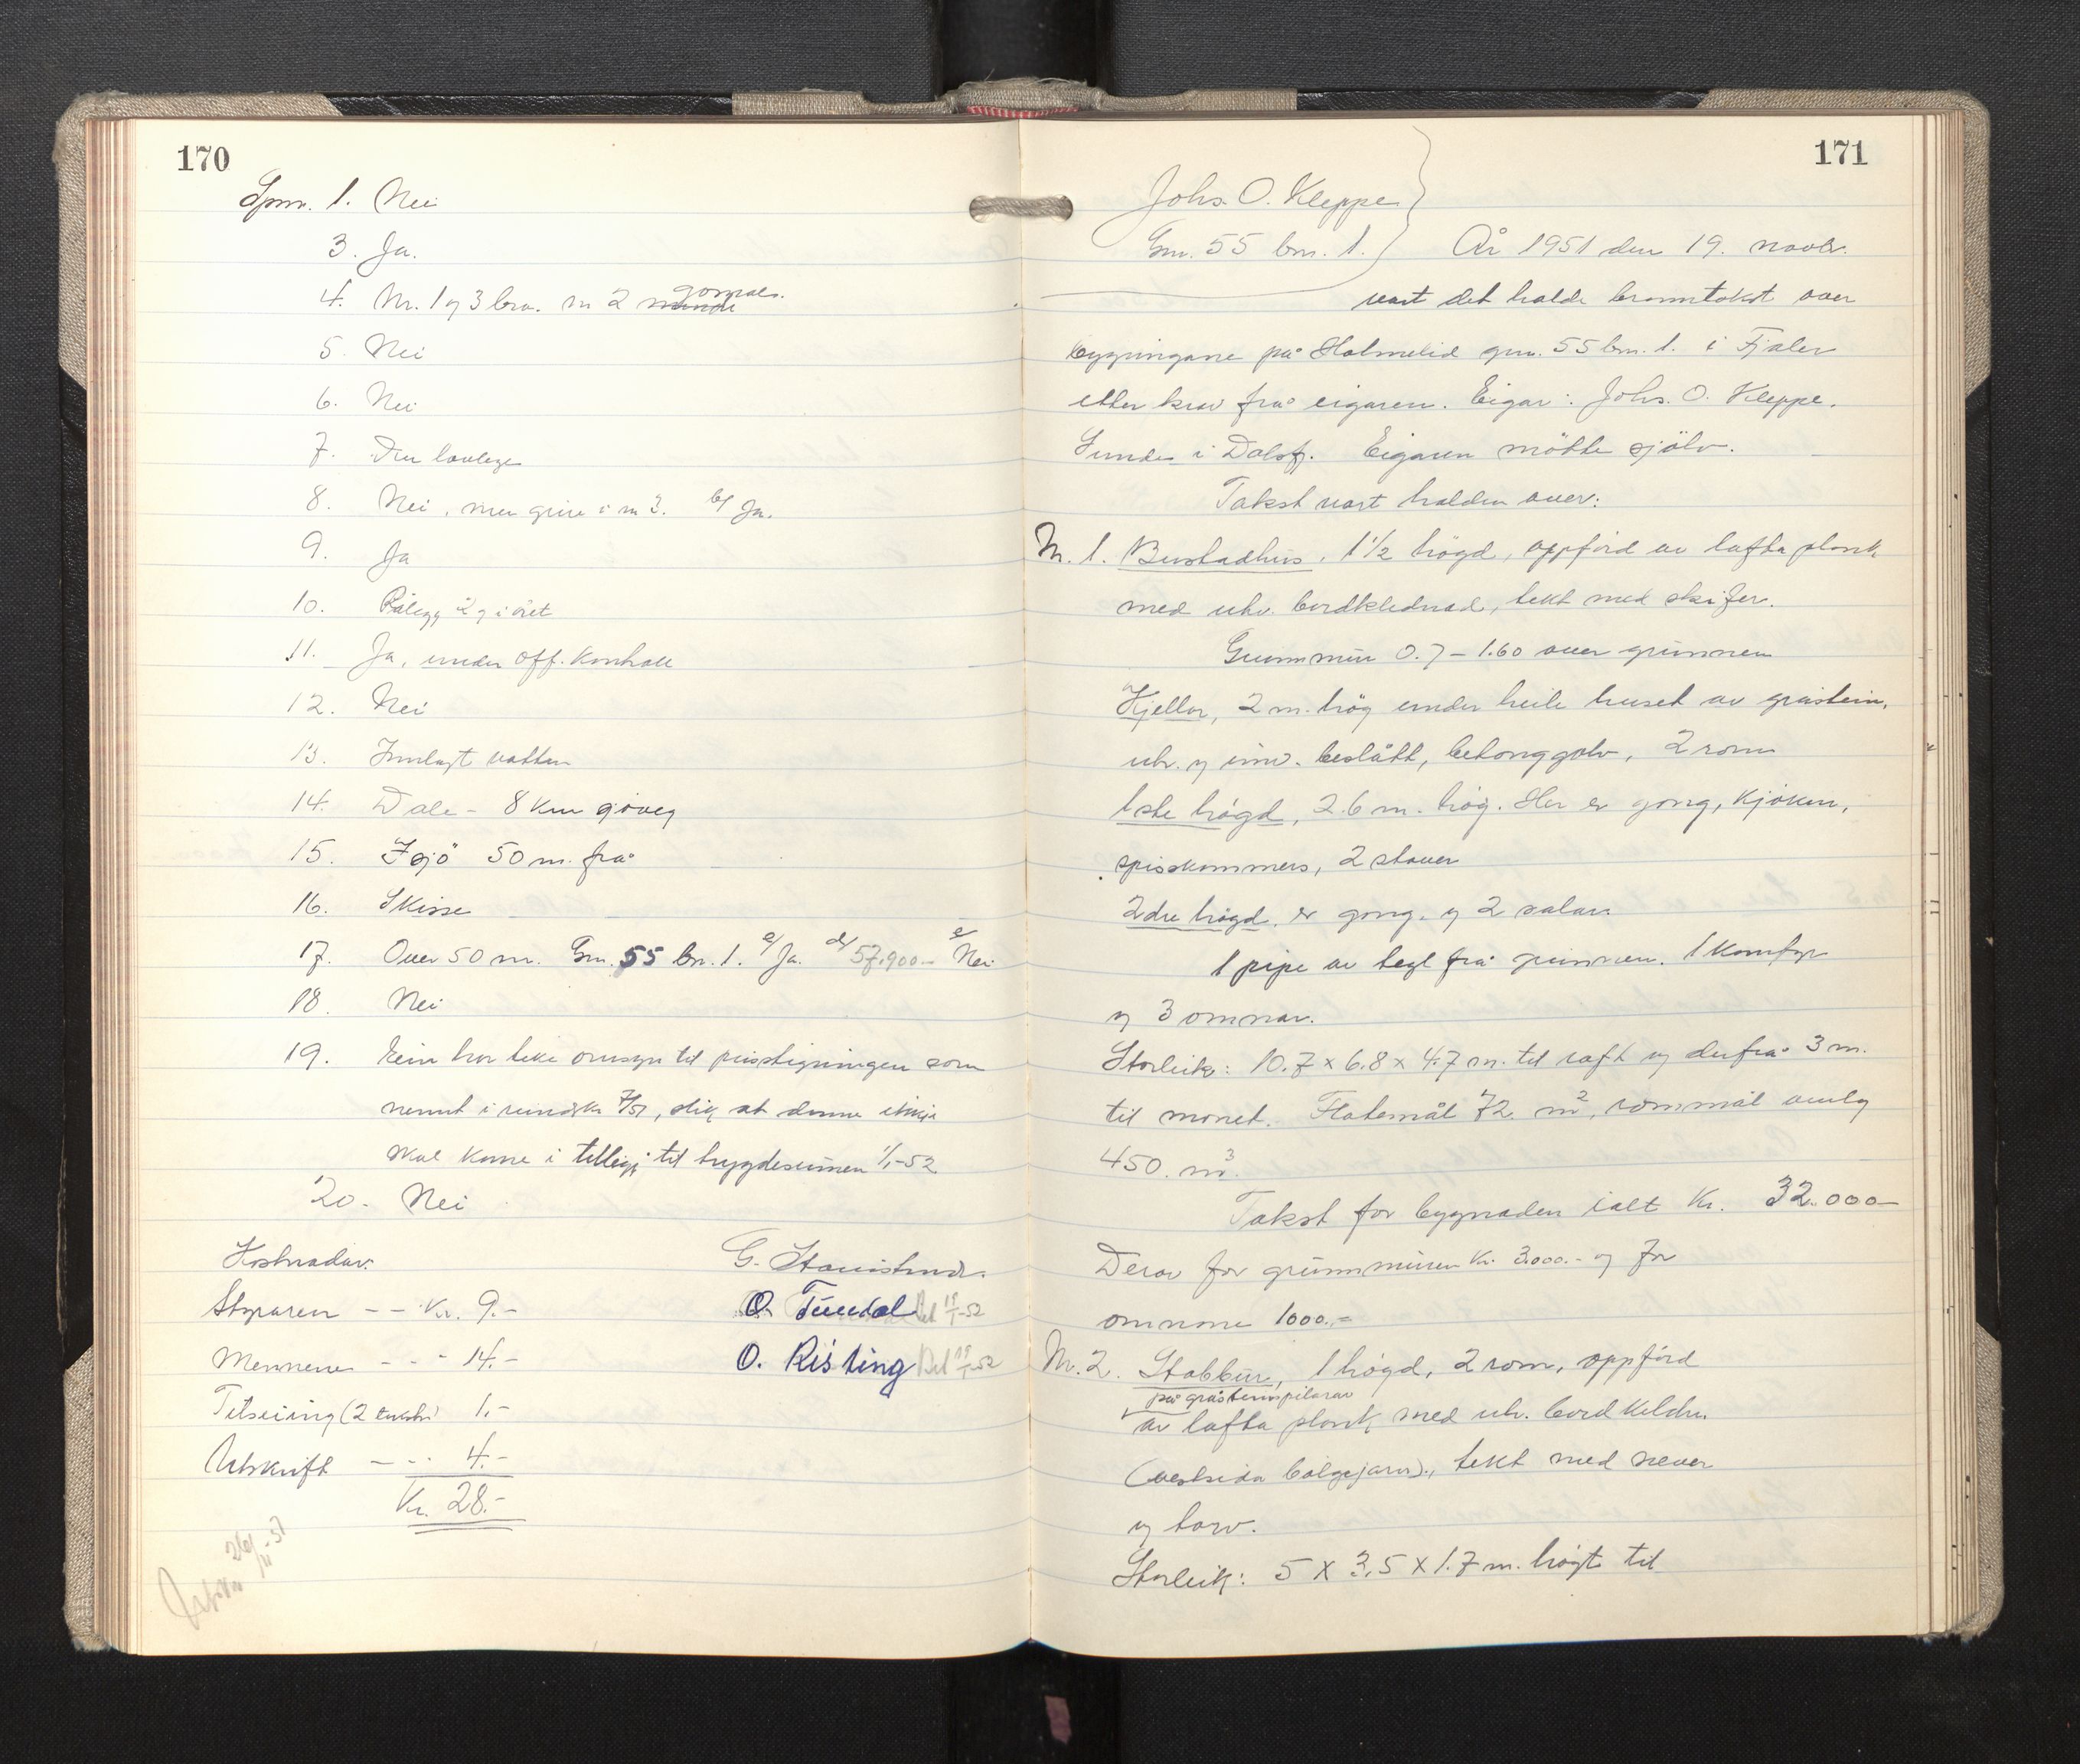 170
Spm. 1. Nei
3. Ja.
4. Nr. 1 og 3 bra. nr 2 gomalt.
5. Nei
6. Nei
7. Den lovlege
8. Nei, men grue i nr 3. b/ Ja.
9. Ja
10. Pålegg 2 g i året
11. Ja, under off. kontroll
12. Nei
13. Innlagt vatten
14. Dale - 8 km sjöveg
15. I sjö 50 m. frå
16. Skisse
17. Over 50 m. Gnr. 55 bn. 1. a/ Ja. d/ 57.900.- e/ Nei
18. Nei
19. Ein har ikke omsyn til prisstigningen som
nemnt i rundskr. 7/51, slik at denne ikkje
skal kome i tillegg til trygdesummen 1/1-52
20. Nei
Kostnadar:
Styraren -- Kr. 9.-
Mennene --- 14.-
Tilseiing (2 takstr) 1.-
Utskrift --- 4.-
Kr. 28.-
O. Tundal
O. Risting
26/11-51
171
Johs. O. Kleppe
Gnr. 55 bnr. 1. År 1951 den 19. novbr.
vart det halde branntakst over
bygningane på Holmelid gnr. 55 bnr. 1. i Fjaler
etter krav frå eigaren. Eigar: Johs. O. Kleppe.
Sunde i Dalsfj. Eigaren mötte sjölv.
Takst vart halden over:
Nr. 1. Bustadhus, 1 1/2 högd, oppförd av lafta plank
med utv. bordklednad, tekt med skifer.
Grunnmur 0.7 - 1.60 over grunnen
Kjellar, 2 m. hög under heile huset av gråstein,
utv. og innv. beslått, betonggolv, 2 rom
1ste högd, 2.6 m. hög. Her er gong, kjöken,
spisskammers, 2 stover
2dre högd, er gong og 2 salar.
1 pipe av tegl frå grunnen. 1 komfyr
og 3 omnar.
Storleik: 10.7 x 6.8 x 4.7 m. til raft og derfrå 3 m.
til mönet. Flatemål 72 m², rommål omlag
450 m³.
Takst for bygnaden ialt Kr. 32.000-
Derav for grunnmuren kr. 3.000.- og for
omnane 1000.-
Nr. 2. Stabbur, 1 högd, 2 rom, oppförd
på gråsteinspilarar
av lafta plank med utv. bordkledn.
(vestsida bölgejarn), tekt med never
og torv.
Storleik: 5 x 3.5 x 1.7 m. högt til